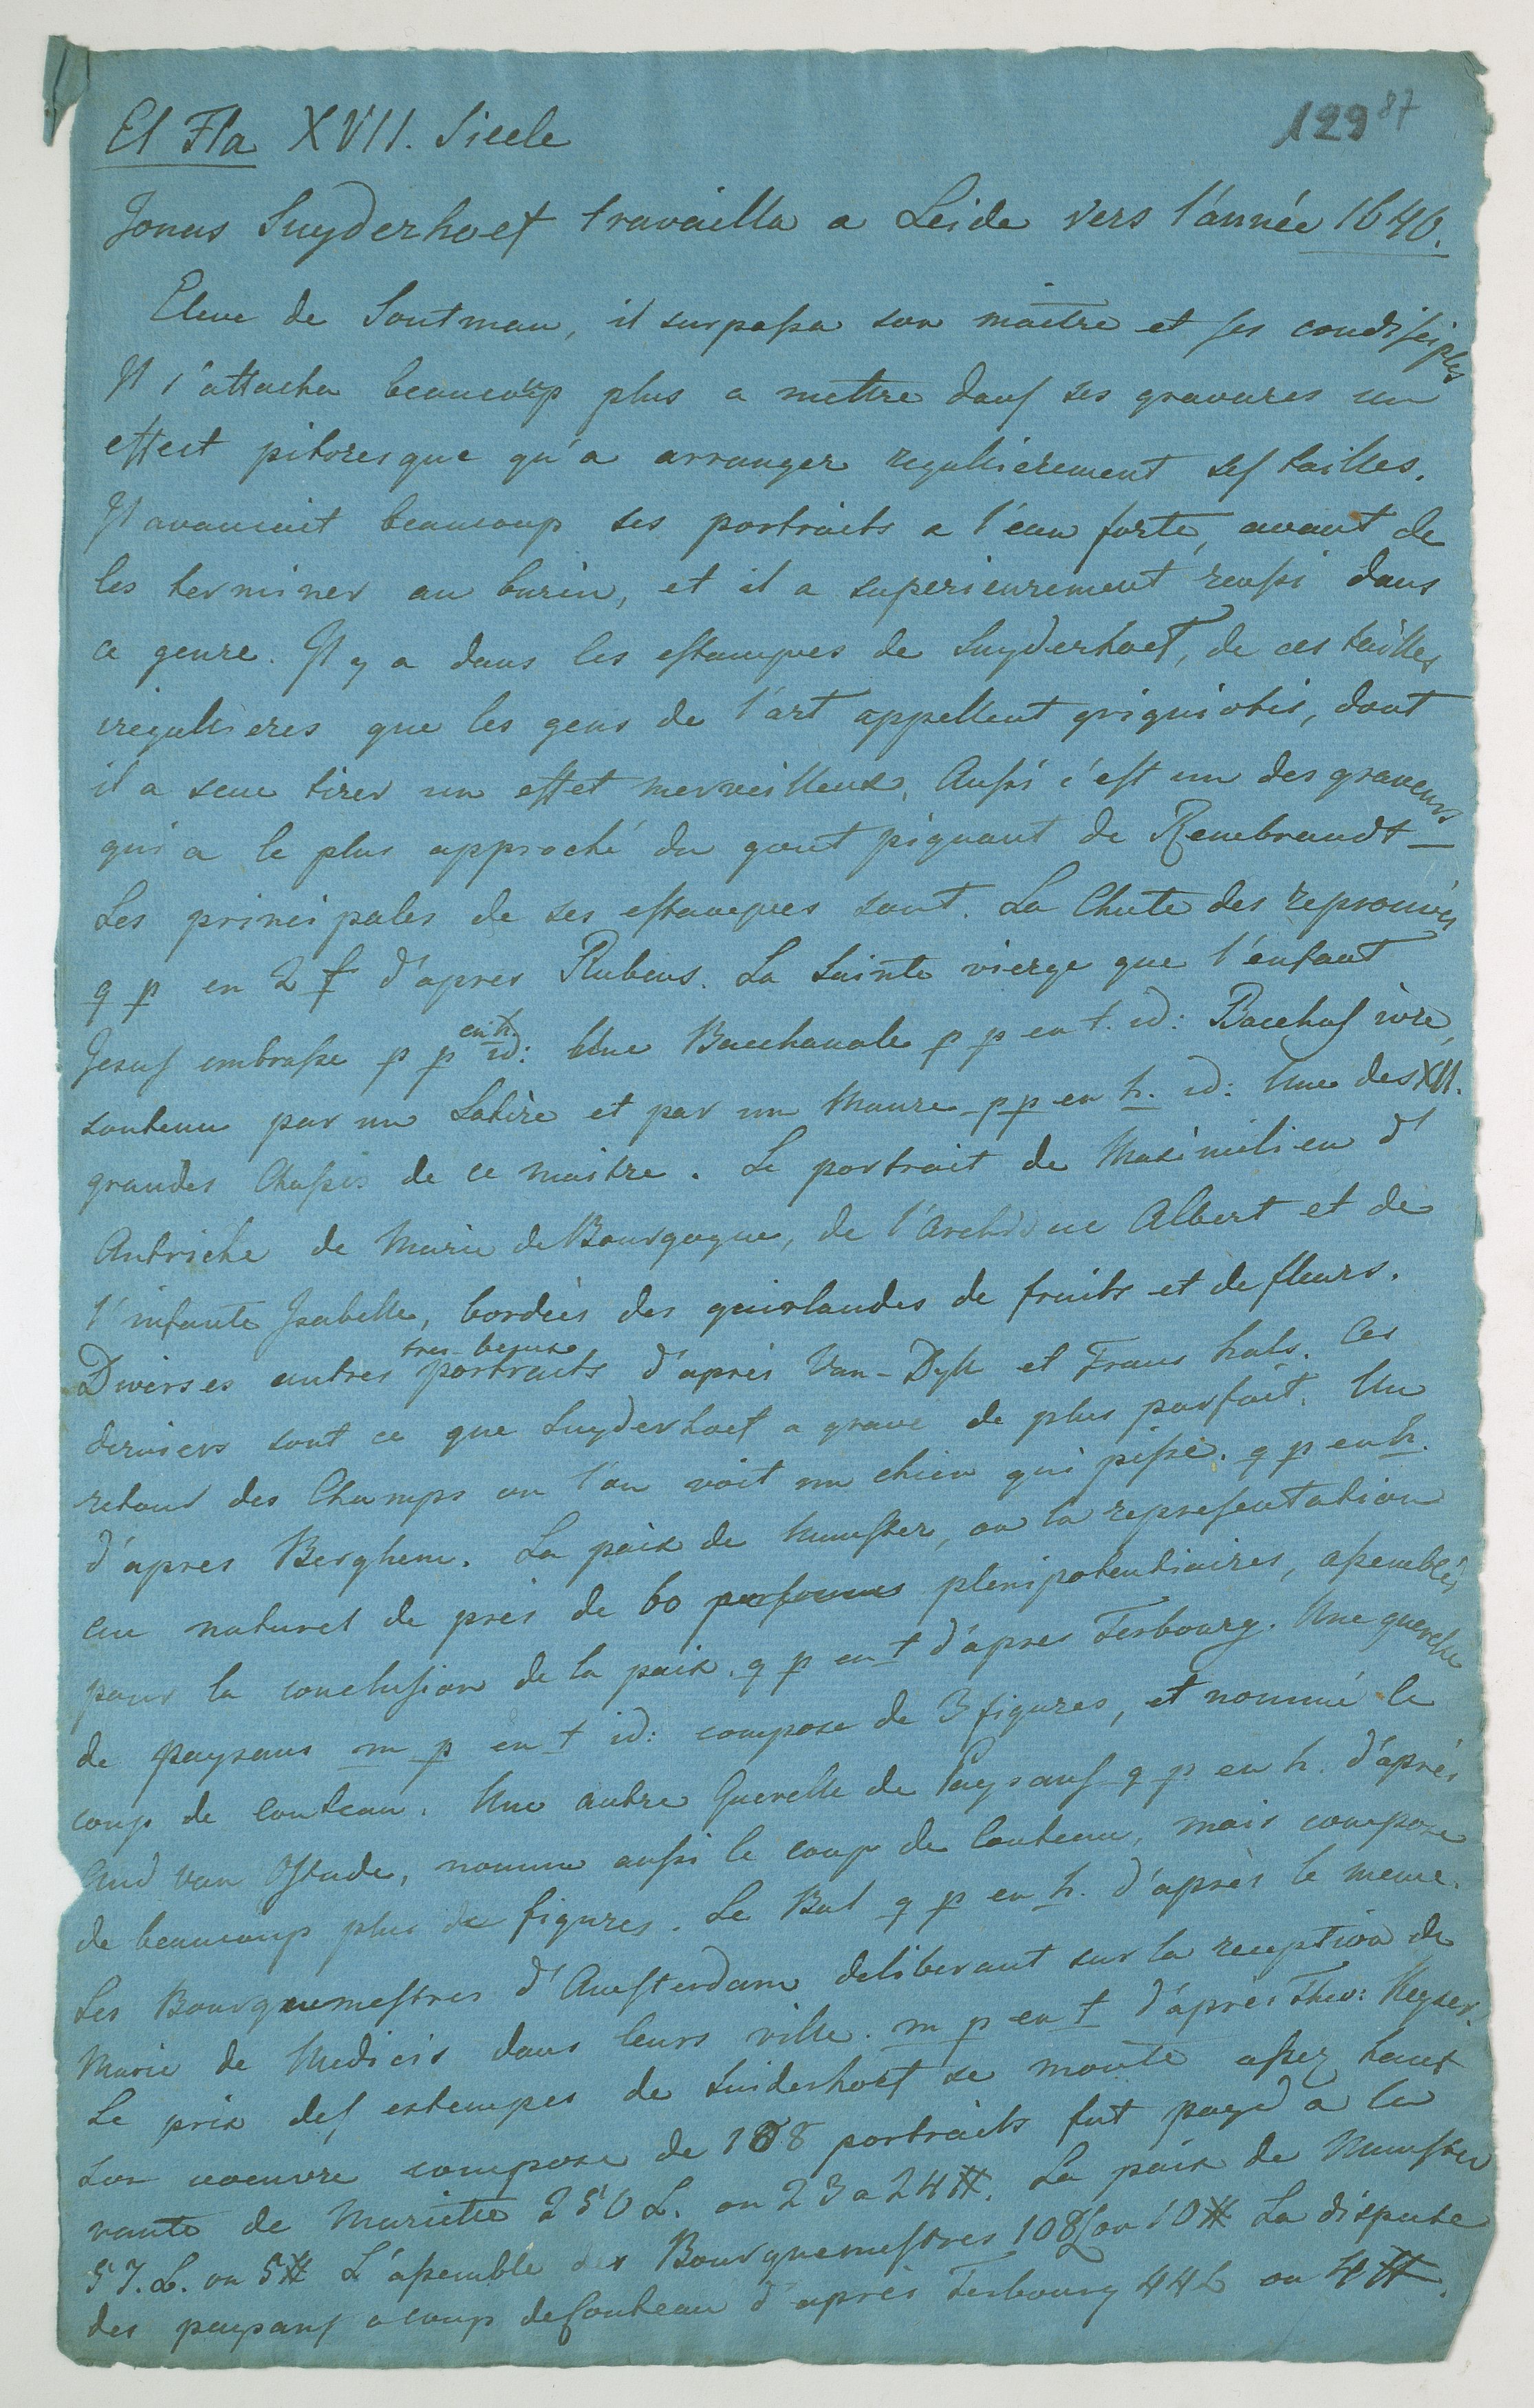 El Fla XVII. Siecle
129 87
Jonas Suyderhoef travailla a Leide vers l'année 1640.
Eleve de Soutman, il surpassa son maitre et ses condisciples
Il s'attacha beaucoup plus a mettre dans ses gravures un
effect pitoresque qu'a arranger regullierement ses tailles.
Il avancait beaucoup ses portraits a l'eau forte, avant de
les terminer au burin, et il a superieurement reussi dans
ce genre. Il y a dans les estampes de Suyderhoef, de ces tailles
iregullieres que les gens de l'art appellent grigniotis, dont
il a scue tirer un effet merveilleux. Aussi c'est un des graveurs
qui a le plus approché du gout piquant de Rembrandt _
Les principales de ses estampes sont. La Chute des reprouvés
g p en 2 f d'apres Rubens. La Sainte vierge que l'enfant
Jesus embrasse p p en h. id: Une Bacchanale p p en t. id: Bacchus ivre,
soutenu par un Satire et par un Maure p p en h. id: Une des XII.
grandes Chasses de ce maitre. Le portrait de Maximilien d'
Autriche de Marie de Bourgogne, de l'Archiduc Albert et de
l'infante Isabelle, bordées des guirlandes de fruits et de fleurs.
Diverses autres tres-beaux portraits d'après Van-Dyk et Frans hals. Ces
derniers sont ce que Suyderhoef a gravé de plus parfait. Un
retour des Champs ou l'on voit un chien qui pisse. g p en h.
d'apres Berghem. La paix de Munster, ou la representation
au naturel de près de 60 personnes plenipotentiaires, assemblés
pour la conclusion de la paix. g p en t d'apres Terbourg. Une querelle
de paysans m p en t id: compose de 3 figures, et nommé le
coup de couteau. Une autre Querelle de Paysans g p en h. d'après
And van Ostade, nomme aussi le coup de Couteau, mais compose
de beaucoup plus de figures. Le Bal g p en h. d'après le meme.
Les Bourguemestres d'Amsterdam deliberant sur la reception de
Marie de Medicis dans leurs ville. m p en t d'après Theo: Keyser.
Le prix des estempes de Suiderhoef se monte assez haut
Son oeuvre compose de 108 portraits fut payé a la
vante de Mariette 250 L. ou 23 a 24 #. La paix de Munster
57. L. ou 5 # L'assemble des Bourguemestres 108 L ou 10 # La dispute
des paysans a coup de Couteau d'après Terbourg 44 L ou 4 #.